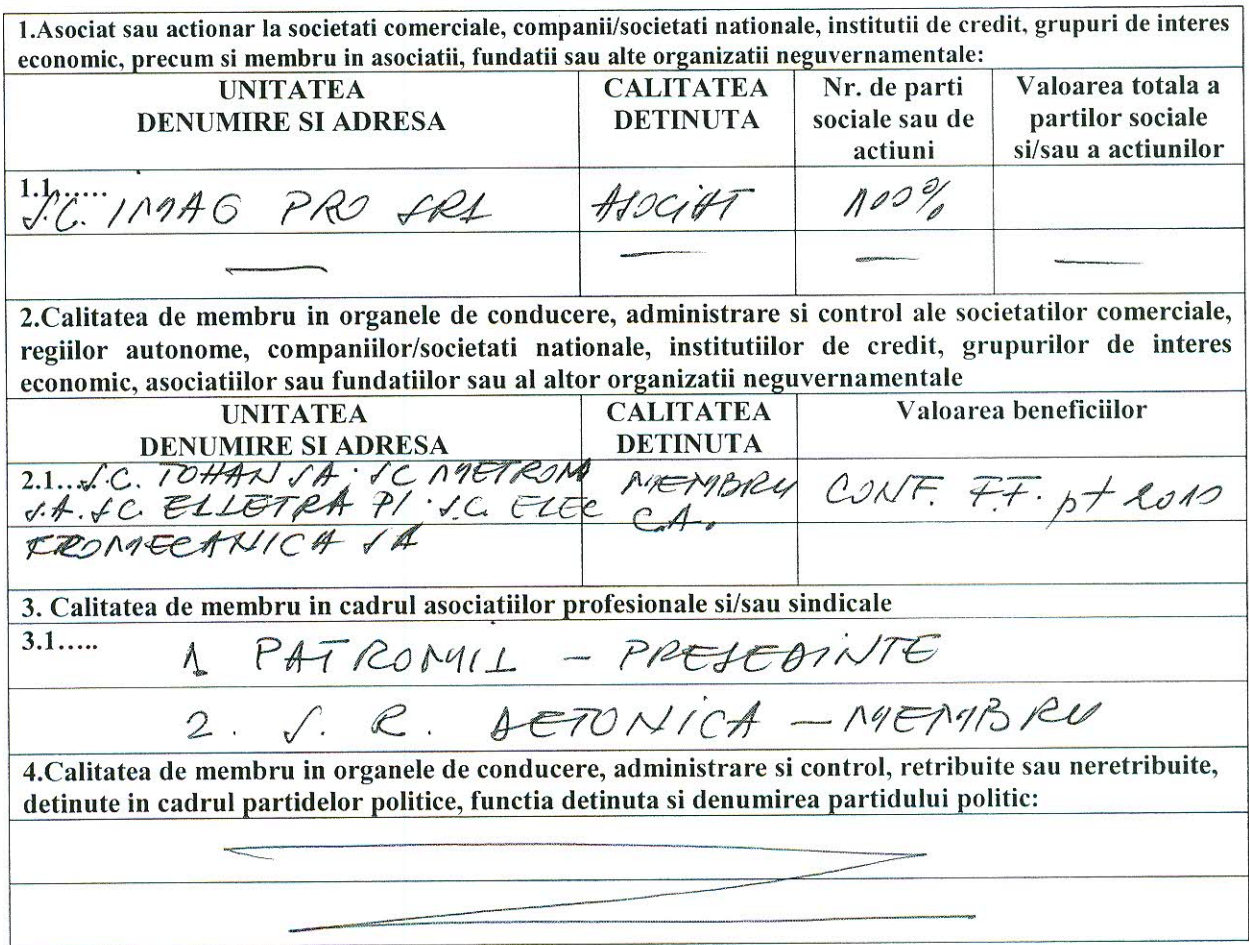 1.Asociat sau actionar la societati comerciale, companii/societati nationale, institutii de credit, grupuri de interes
economic, precum si membru in asociatii, fundatii sau alte organizatii neguvernamentale:
UNITATEA
DENUMIRE SI ADRESA
CALITATEA
DETINUTA
Nr. de parti
sociale sau de
actiuni
Valoarea totala a
partilor sociale
si/sau a actiunilor
1.1......
S.C. IMAG PRO SRL
ASOCIAT
100%
— — — —
2.Calitatea de membru in organele de conducere, administrare si control ale societatilor comerciale,
regiilor autonome, companiilor/societati nationale, institutiilor de credit, grupurilor de interes
economic, asociatiilor sau fundatiilor sau al altor organizatii neguvernamentale
UNITATEA
DENUMIRE SI ADRESA
CALITATEA
DETINUTA
Valoarea beneficiilor
2.1...S.C. TOHAN SA. SC METROM
S.A. S.C. ELLETRA PI. S.C. ELEC
TROMECANICA SA
MEMBRU
C.A.
CONF. F.F. pt 2010
3. Calitatea de membru in cadrul asociatiilor profesionale si/sau sindicale
3.1.....
1 PATROMIL – PRESEDINTE
2. S. R. DETONICA – MEMBRU
4.Calitatea de membru in organele de conducere, administrare si control, retribuite sau neretribuite,
detinute in cadrul partidelor politice, functia detinuta si denumirea partidului politic: